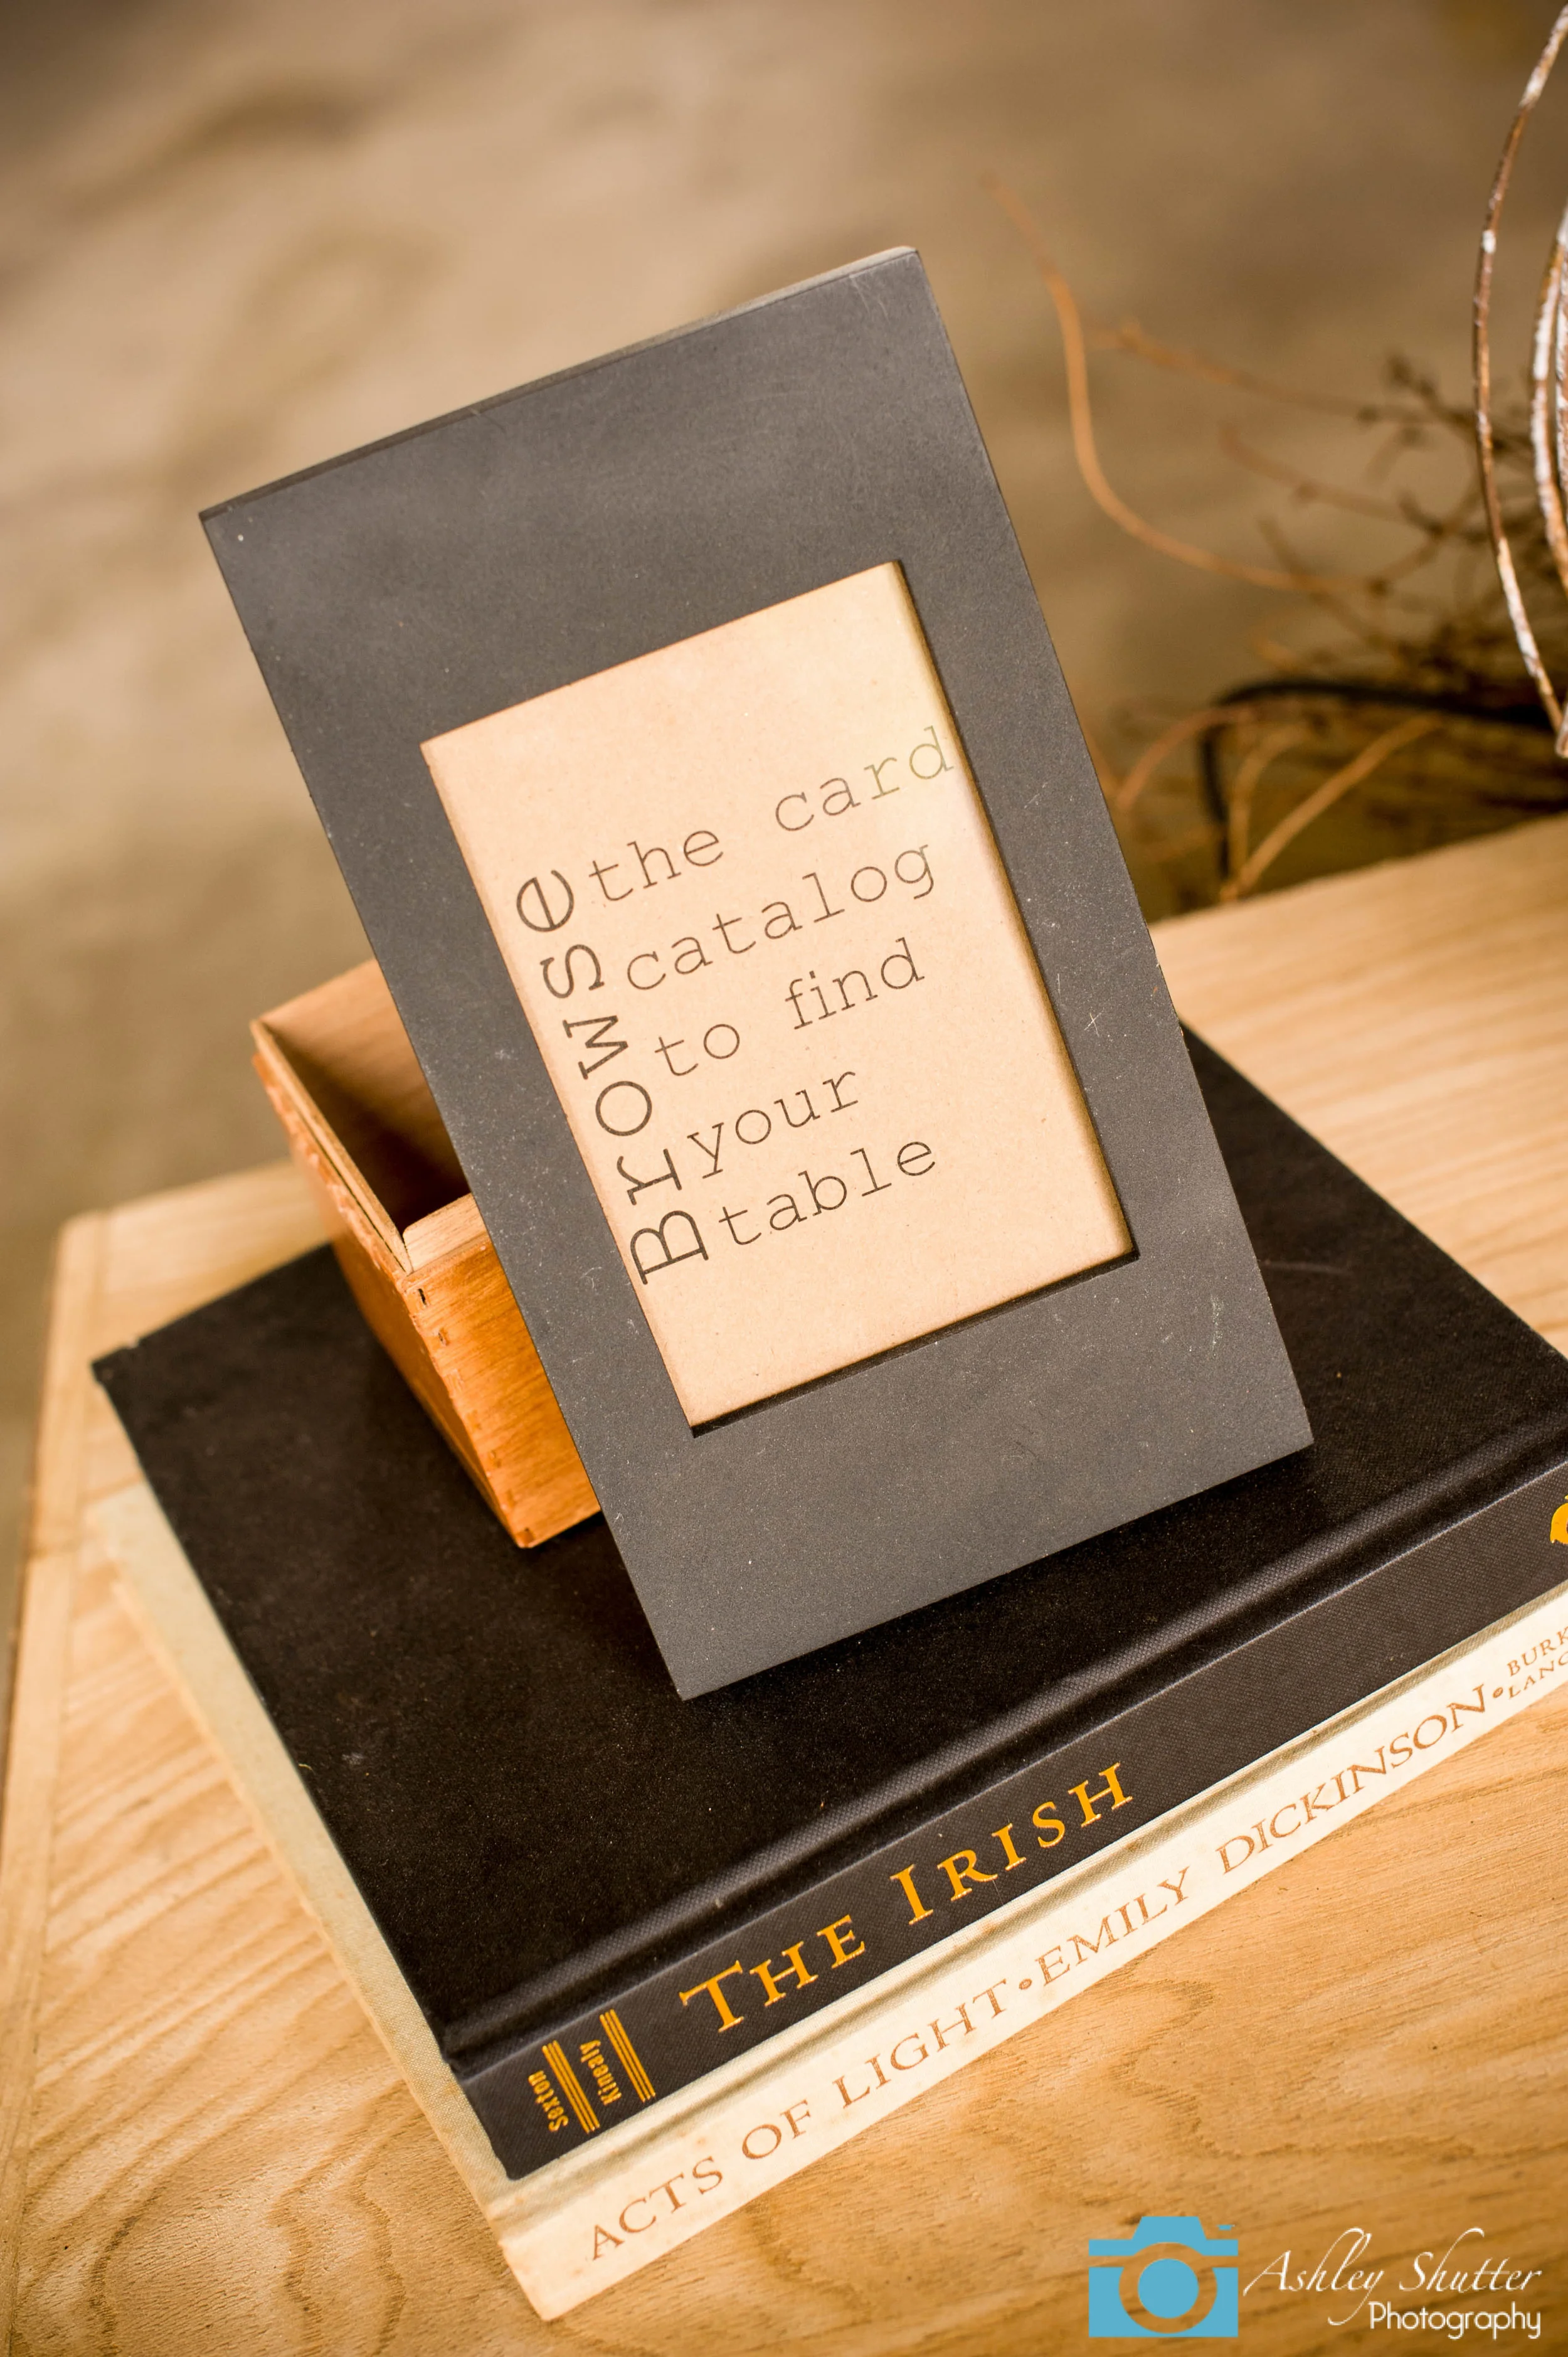 Browse
the card
catalog
to find
your
table
THE IRISH
Kinealy
Sexton
ACTS OF LIGHT • EMILY DICKINSON •
Ashley Shutter
Photography